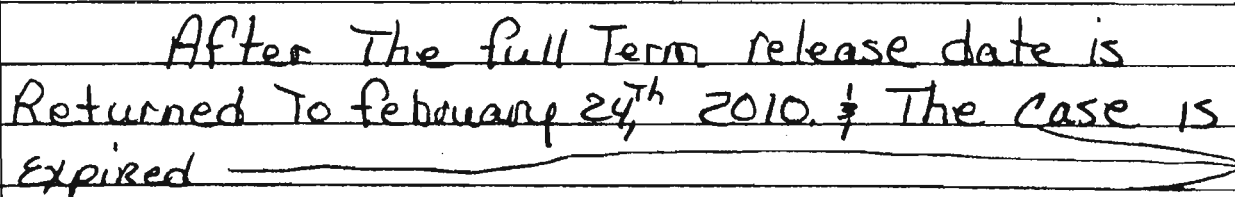 After The full Term release date is
Returned To febouary 24,Th 2010. & The Case is
Expired